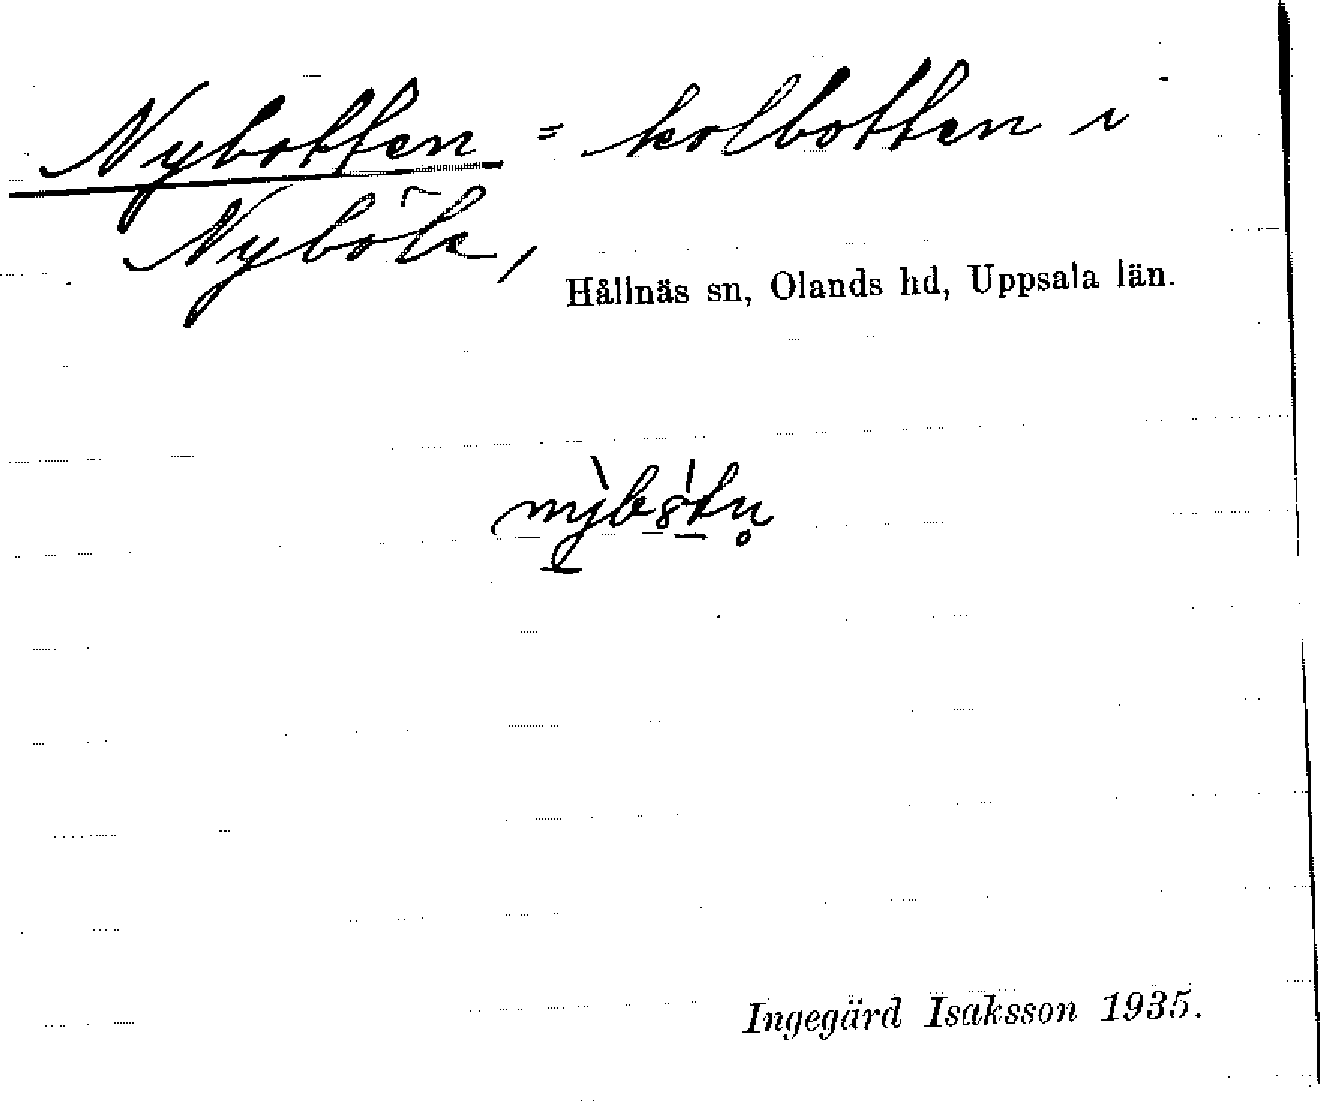 Nybotten = kolbotten i
Nyböle,
Hållnäs sn, Olands hd, Uppsala län.
Ingegärd Isaksson 1935.